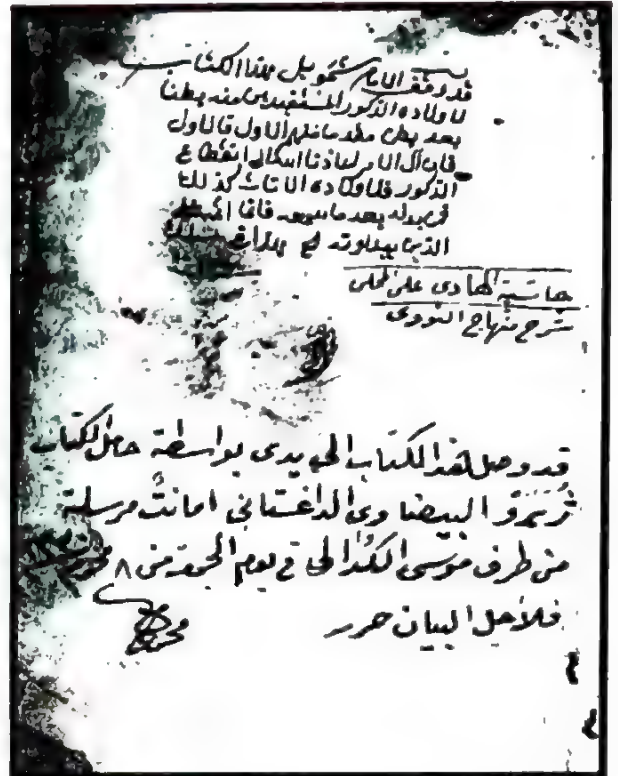 قد وقف الامام شمويل هذا الكتاب
لاولاده الذكور المستفيدين منه بطنا
بعد بطن مقدما منهم الاول فالاول
فان آل الامر لعاذنا الله الى انقطاع
الذكور فلاولاده الاناث كذلك
فمن بدله بعد ما سمعه فانما اثمه على
الذين يبدلونه
حاشية الهادى على المحلى
شرح منهاج النووى
قد وصل هذا الكتاب الى يدى بواسطة حامل الكتاب
البيضاوى الداغستانى امانت مرسلة
من طرف موسى الكدالى فى يوم الجمعة من ٨ محرم
فلاجل البيان حرر